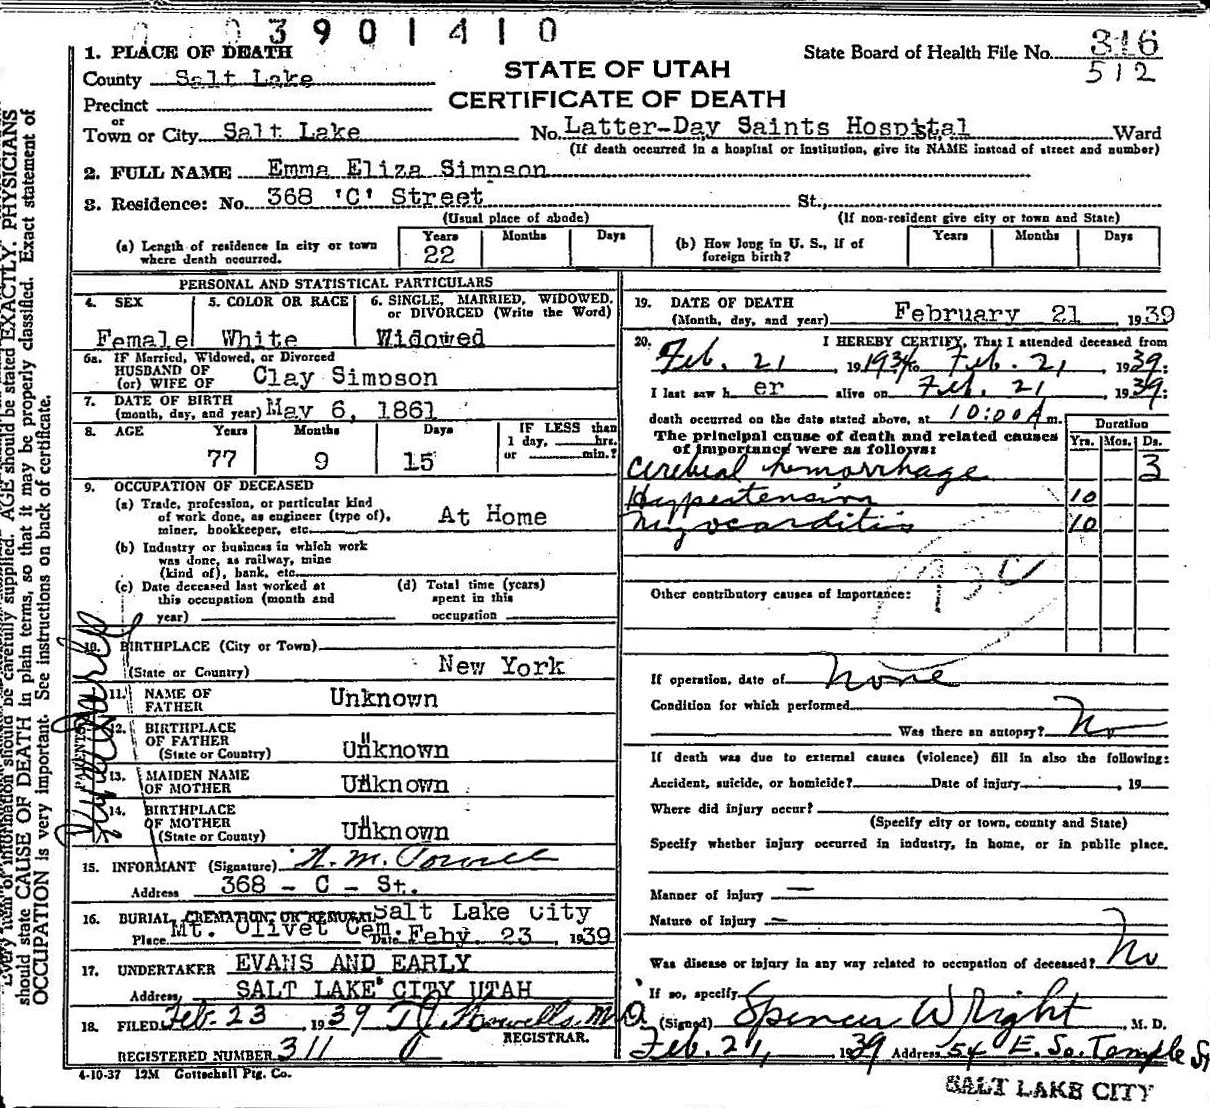 3901410
1. PLACE OF DEATH
State Board of Health File No. 316
512
County Salt Lake
STATE OF UTAH
CERTIFICATE OF DEATH
Precinct
or
Town or City Salt Lake No. Latter-Day Saints Hospital Ward
(If death occurred in a hospital or institution, give its NAME instead of street and number)
2. FULL NAME Emma Eliza Simpson
3. Residence: No. 368 'C' Street St.,
(Usual place of abode) (If non-resident give city or town and State)
(a) Length of residence in city or town where death occurred. Years 22 Months Days
(b) How long in U. S., if of foreign birth? Years Months Days
PERSONAL AND STATISTICAL PARTICULARS
4. SEX Female
5. COLOR OR RACE White
6. SINGLE, MARRIED, WIDOWED, or DIVORCED (Write the Word) Widowed
6a. IF Married, Widowed, or Divorced
HUSBAND OF
(or) WIFE OF Clay Simpson
7. DATE OF BIRTH
(month, day, and year) May 6, 1861
8. AGE Years 77 Months 9 Days 15 IF LESS than 1 day, hrs. or min.?
9. OCCUPATION OF DECEASED
(a) Trade, profession, or particular kind
of work done, as engineer (type of),
miner, bookkeeper, etc. At Home
(b) Industry or business in which work
was done, as railway, mine
(kind of), bank, etc.
(c) Date deceased last worked at
this occupation (month and
year)
(d) Total time (years)
spent in this
occupation
10. BIRTHPLACE (City or Town)
(State or Country) New York
PARENTS
11. NAME OF FATHER Unknown
12. BIRTHPLACE OF FATHER
(State or Country) Unknown
13. MAIDEN NAME OF MOTHER Unknown
14. BIRTHPLACE OF MOTHER
(State or County) Unknown
15. INFORMANT (Signature) H. M. Powell
Address 368 - C - St.
16. BURIAL, CREMATION, OR REMOVAL Salt Lake City
Place Mt. Olivet Cem. Date Feby. 23, 1939
17. UNDERTAKER EVANS AND EARLY
Address SALT LAKE CITY UTAH
18. FILED Feb. 23 1939 T J Howells. M.D.
REGISTRAR.
REGISTERED NUMBER 311
4-10-37 12M Gottschall Ptg. Co.
19. DATE OF DEATH
(Month, day, and year) February 21, 1939
20. I HEREBY CERTIFY, That I attended deceased from
Feb. 21, 1934 to Feb. 21, 1939:
I last saw her alive on Feb. 21 1939:
death occurred on the date stated above, at 10:00A m.
The principal cause of death and related causes
of importance were as follows:
Duration
Yrs. Mos. Ds.
Cerebral hemorrhage 3
Hypertension 10
Myocarditis 10
Other contributory causes of importance:
If operation, date of none
Condition for which performed
Was there an autopsy? No
If death was due to external causes (violence) fill in also the following:
Accident, suicide, or homicide? Date of injury , 19
Where did injury occur?
(Specify city or town, county and State)
Specify whether injury occurred in industry, in home, or in public place.
Manner of injury —
Nature of injury —
Was disease or injury in any way related to occupation of deceased? No
If so, specify
(Signed) Spencer Wright, M. D.
Feb. 21, 1939 Address 54 E. So. Temple St
SALT LAKE CITY
should be carefully supplied. AGE should be stated EXACTLY. PHYSICIANS
should state CAUSE OF DEATH in plain terms, so that it may be properly classified. Exact statement of
OCCUPATION is very important. See instructions on back of certificate.